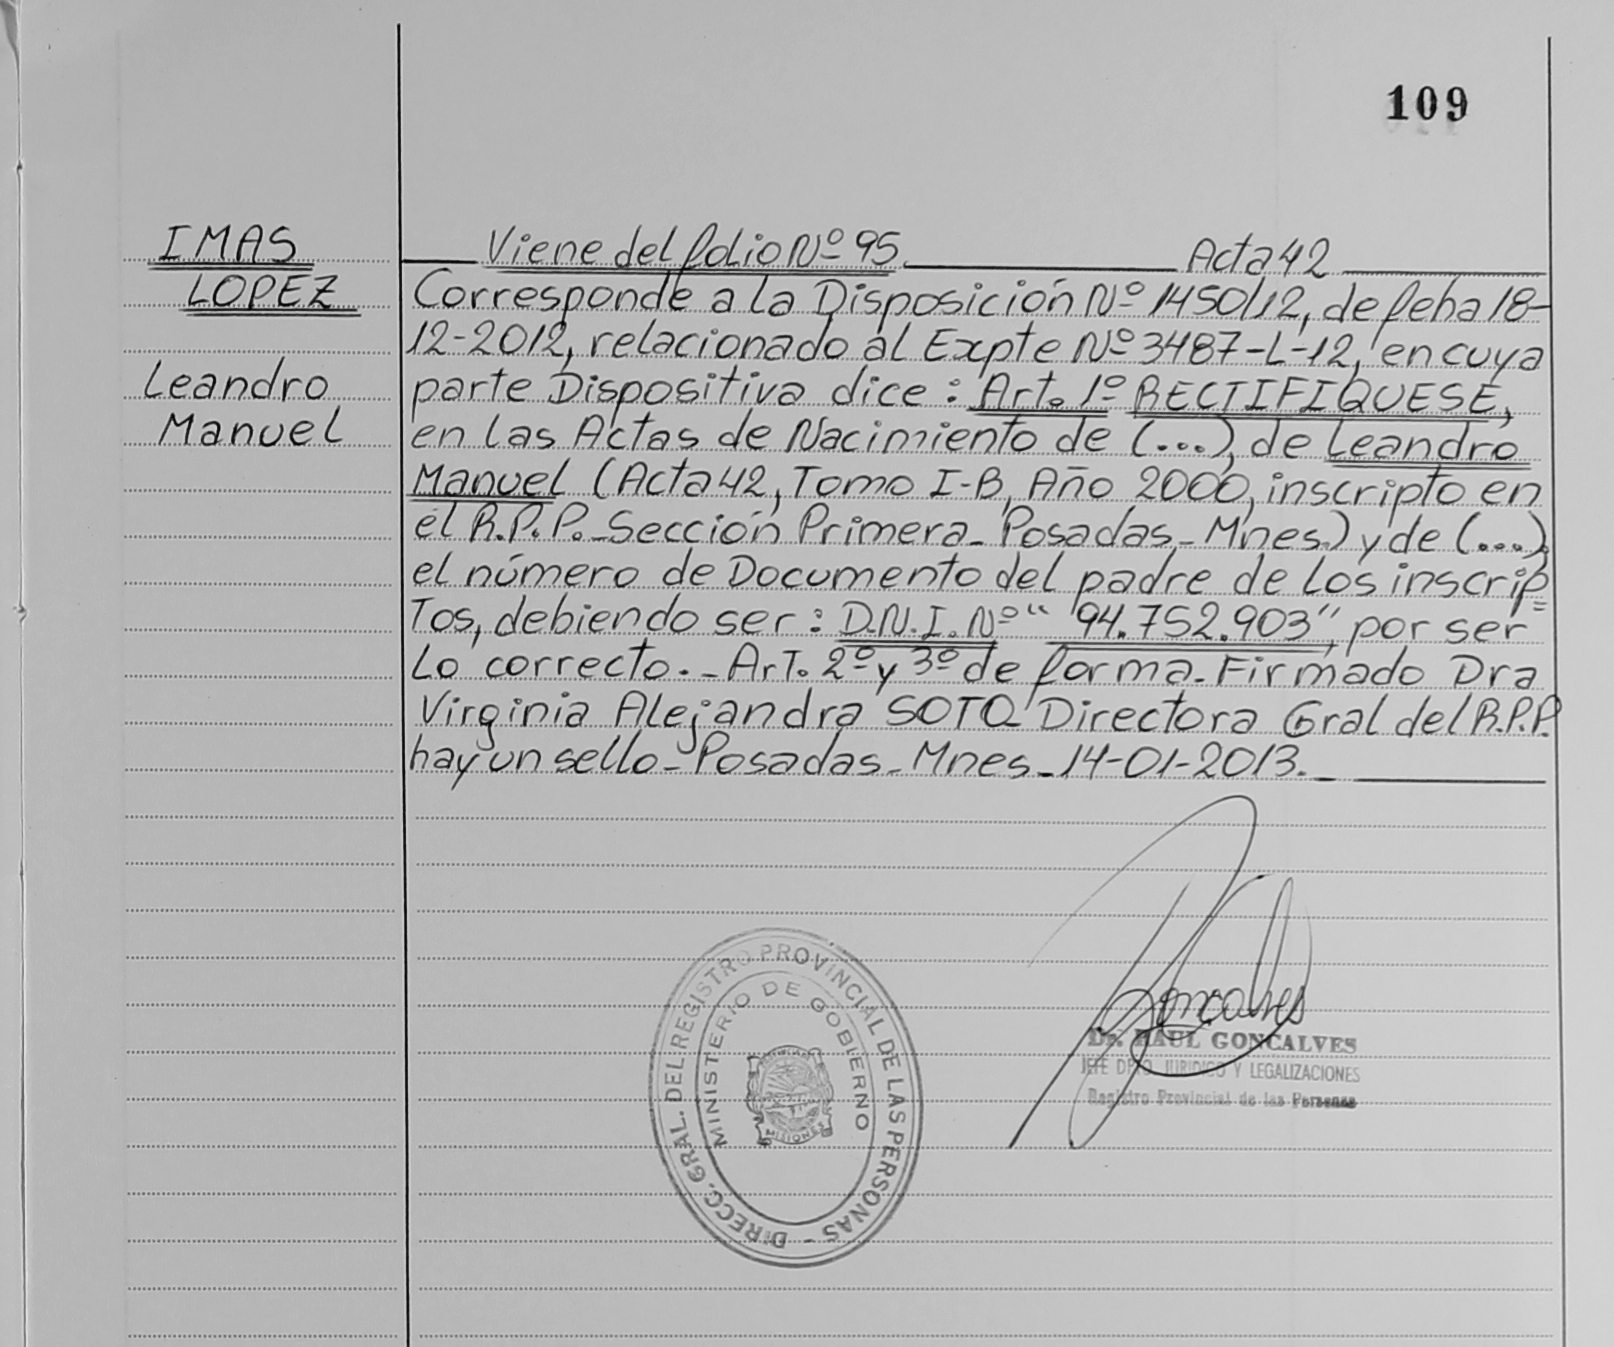 109
IMAS
LOPEZ
Leandro
Manuel
Viene del folio Nº 95. Acta 42
Corresponde a la Disposición Nº 1450/12, de feha 18-
12-2012, relacionado al Expte Nº 3487-L-12, en cuya
parte Dispositiva dice: Art. 1º RECTIFIQUESE,
en las Actas de Nacimiento de (...), de Leandro
Manuel (Acta 42, Tomo I-B, Año 2000, inscripto en
el R.P.P.-Sección Primera-Posadas-Mnes.) y de (...),
el número de Documento del padre de los inscrip=
tos, debiendo ser: D.N.I. Nº "94.752.903", por ser
lo correcto.- Art. 2º y 3º de forma-Firmado Dra
Virginia Alejandra SOTO Directora Gral del R.P.P.
hay un sello-Posadas-Mnes-14-01-2013.-
DIRECC. GRAL. DEL REGISTRO PROVINCIAL DE LAS PERSONAS -
MINISTERIO DE GOBIERNO
MISIONES
Goncalves
Dr. RAUL GONCALVES
JEFE DPTO. JURIDICO Y LEGALIZACIONES
Registro Provincial de las Personas